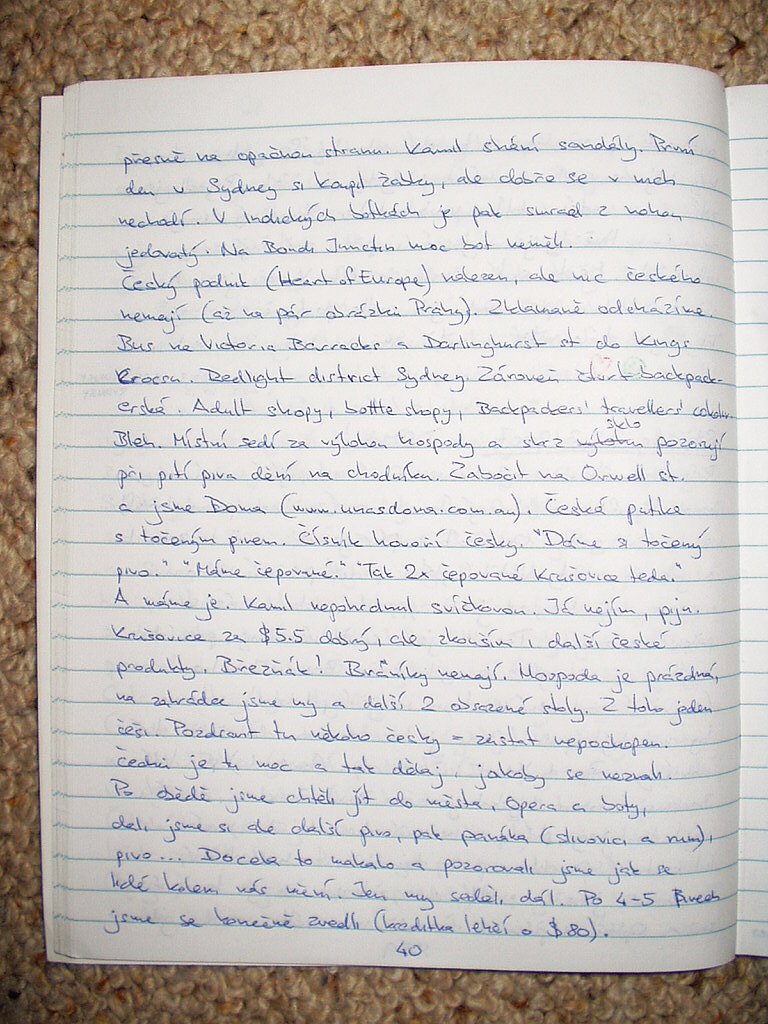 přesně na opačnou stranu. Kamil shání sandály. První
den v Sydney si koupil žabky, ale dobře se v nich
nechodí. V Indických botkách je pak smrad z nohou
jedovatý. Na Bondi Junctin moc bot neměli.
Český podnik (Heart of Europe) nalezen, ale nic českého
nemají (až na pár obrázků Prahy). Zklamaně odcházíme.
Bus na Victoria Barracks a Darlinghurst st do Kings
Crossu. Redlight district Sydney. Zároveň čtvrť backpack-
erská. Adult shopy, bottle shopy, Backpackers' travellers'
Bleh. Místní sedí za výlohou hospody a skrz sklo pozorují
při pití piva dění na chodníku. Zabočit na Orwell st.
a jsme Doma (www.unasdoma.com.au). Česká putika
s točeným pivem. Číšník hovoří česky. "Dáme si točený
pivo." "Máme čepované." "Tak 2x čepované Krušovice teda."
A máme je. Kamil nepohrdnul svíčkovou. Já nejím, piju.
Krušovice za $5.5 dobrý, ale zkouším i další české
produkty. Březňák! Braníky nemají. Hospoda je prázdná,
na zahrádce jsme my a další 2 obsazené stoly. Z toho jeden
češi. Pozdravit tu někoho česky = zůstat nepochopen.
Čechů je tu moc a tak dělaj, jakoby se neznali.
Po obědě jsme chtěli jít do města, Opera a boty,
dali jsme si ale další pivo, pak panáka (slivovici a rum),
pivo... Docela to makalo a pozorovali jsme jak se
lidé kolem nás mění. Jen my seděli dál. Po 4-5 pivech
jsme se konečně zvedli (kreditka lehčí o $80).
40